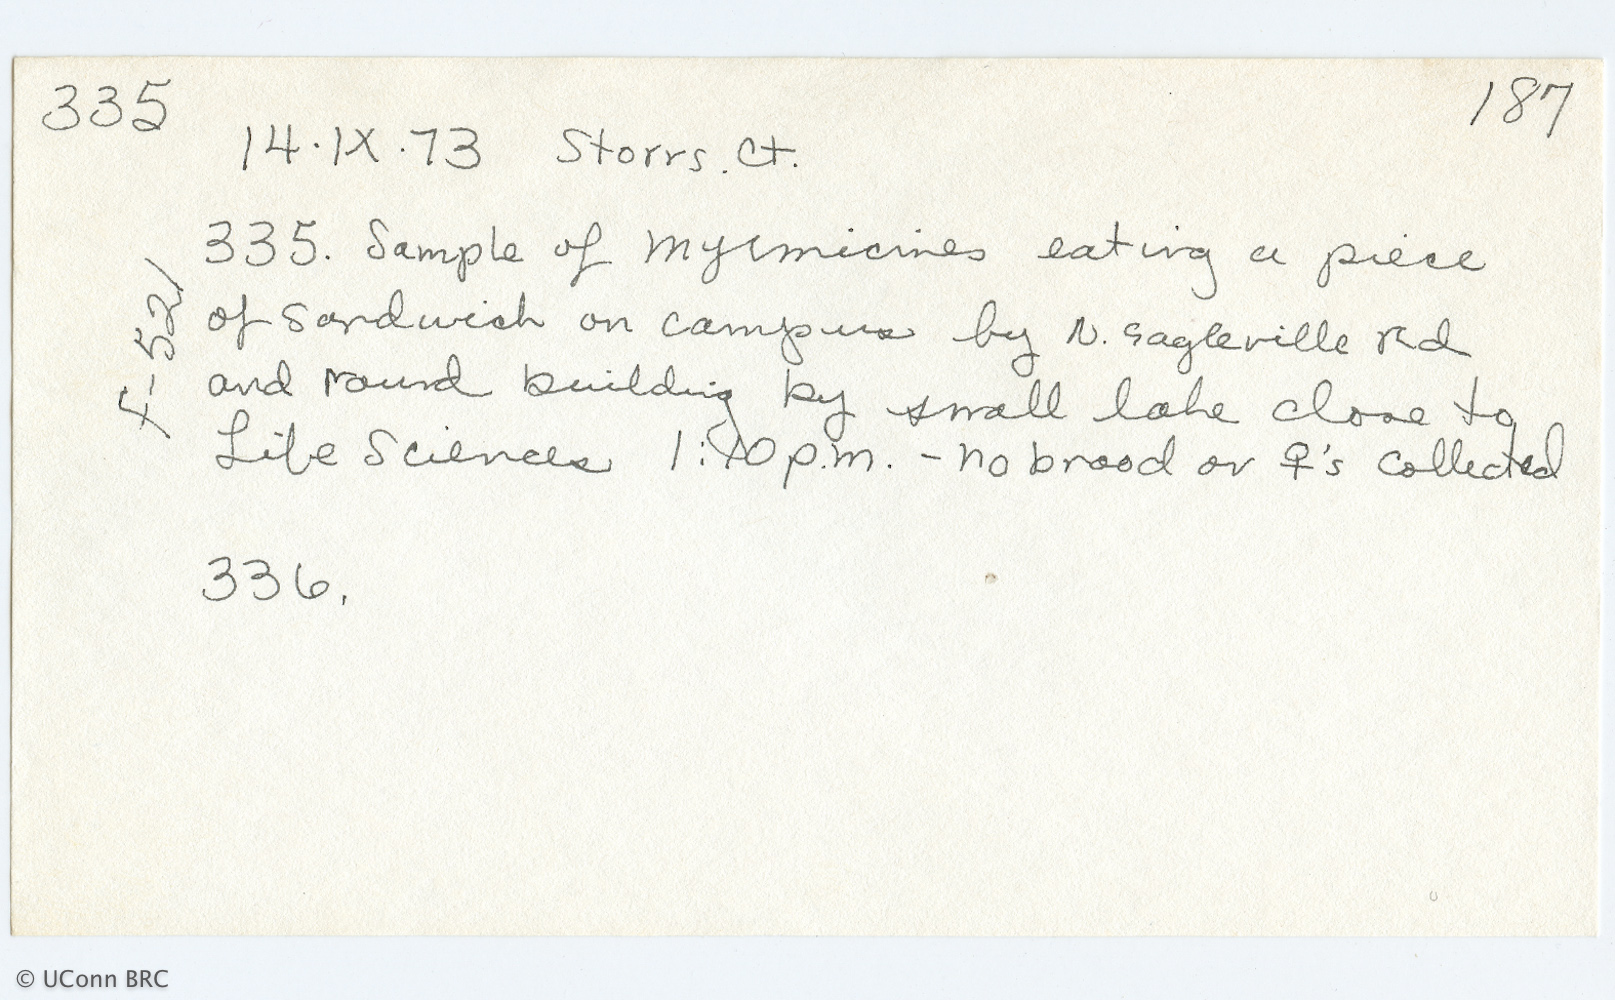 335
187
14.IX.73 Storrs. Ct.
335. Sample of Myrmicines eating a piece
of sandwich on campus by N. Eagleville Rd
and round building by small lake close to
Life Sciences 1:40 p.m. - no brood or ♀'s collected
F-521
336.
© UConn BRC